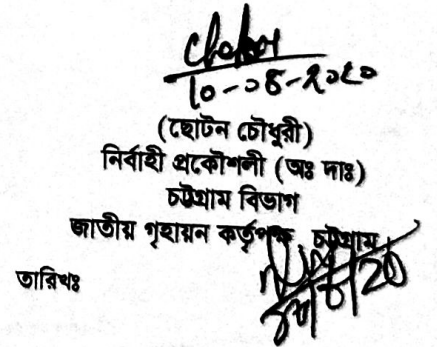 10-08-2020
(ছোটন চৌধুরী)
নির্বাহী প্রকৌশলী (অঃ দাঃ)
চট্টগ্রাম বিভাগ
জাতীয় গৃহায়ন কর্তৃপক্ষ চট্টগ্রাম
তারিখঃ